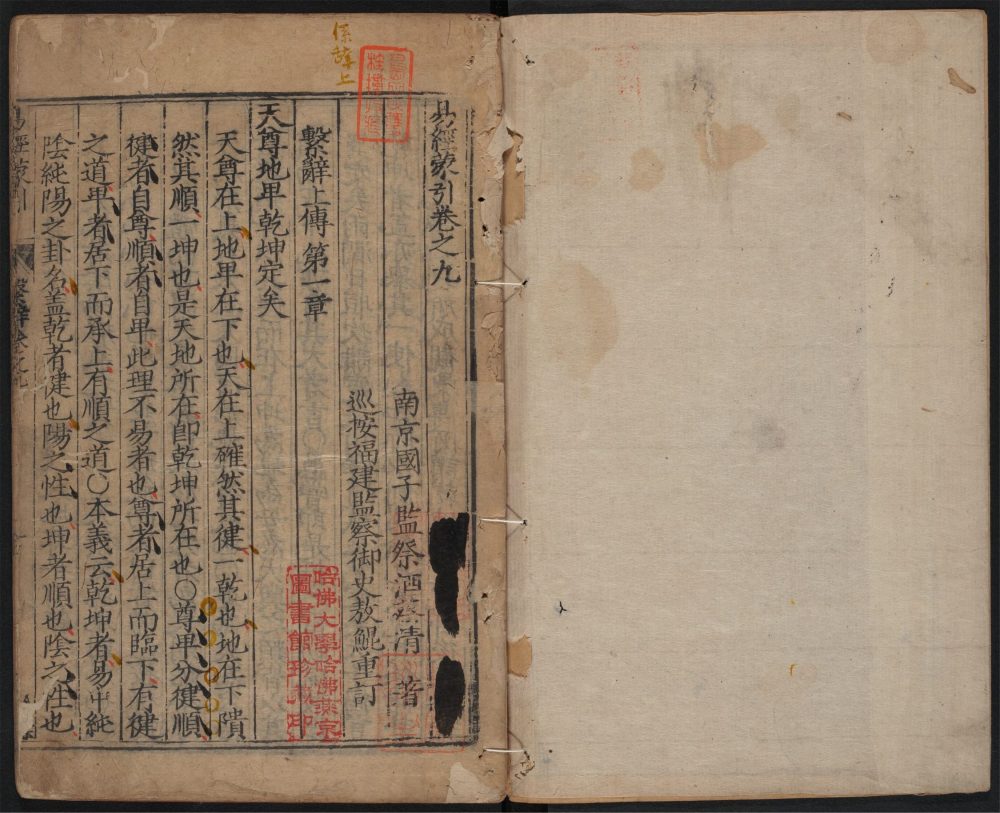 係辭上
易經蒙引卷之九
南京國子監祭酒蔡清 著
巡按福建監察御史敖鯤重訂
繫辭上傳第一章
天尊地卑乾坤定矣
天尊在上地卑在下也天在上確然其健一乾也地在下隤
然其順一坤也是天地所在即乾坤所在也○尊卑分健順
健者自尊順者自卑此理不易者也尊者居上而臨下有健
之道卑者居下而承上有順之道○本義云乾坤者易中純
陰純陽之卦名盖乾者健也陽之性也坤者順也陰之性也
易經蒙引
繫辭卷之九
哈佛大學哈佛燕京
圖書館珍藏印